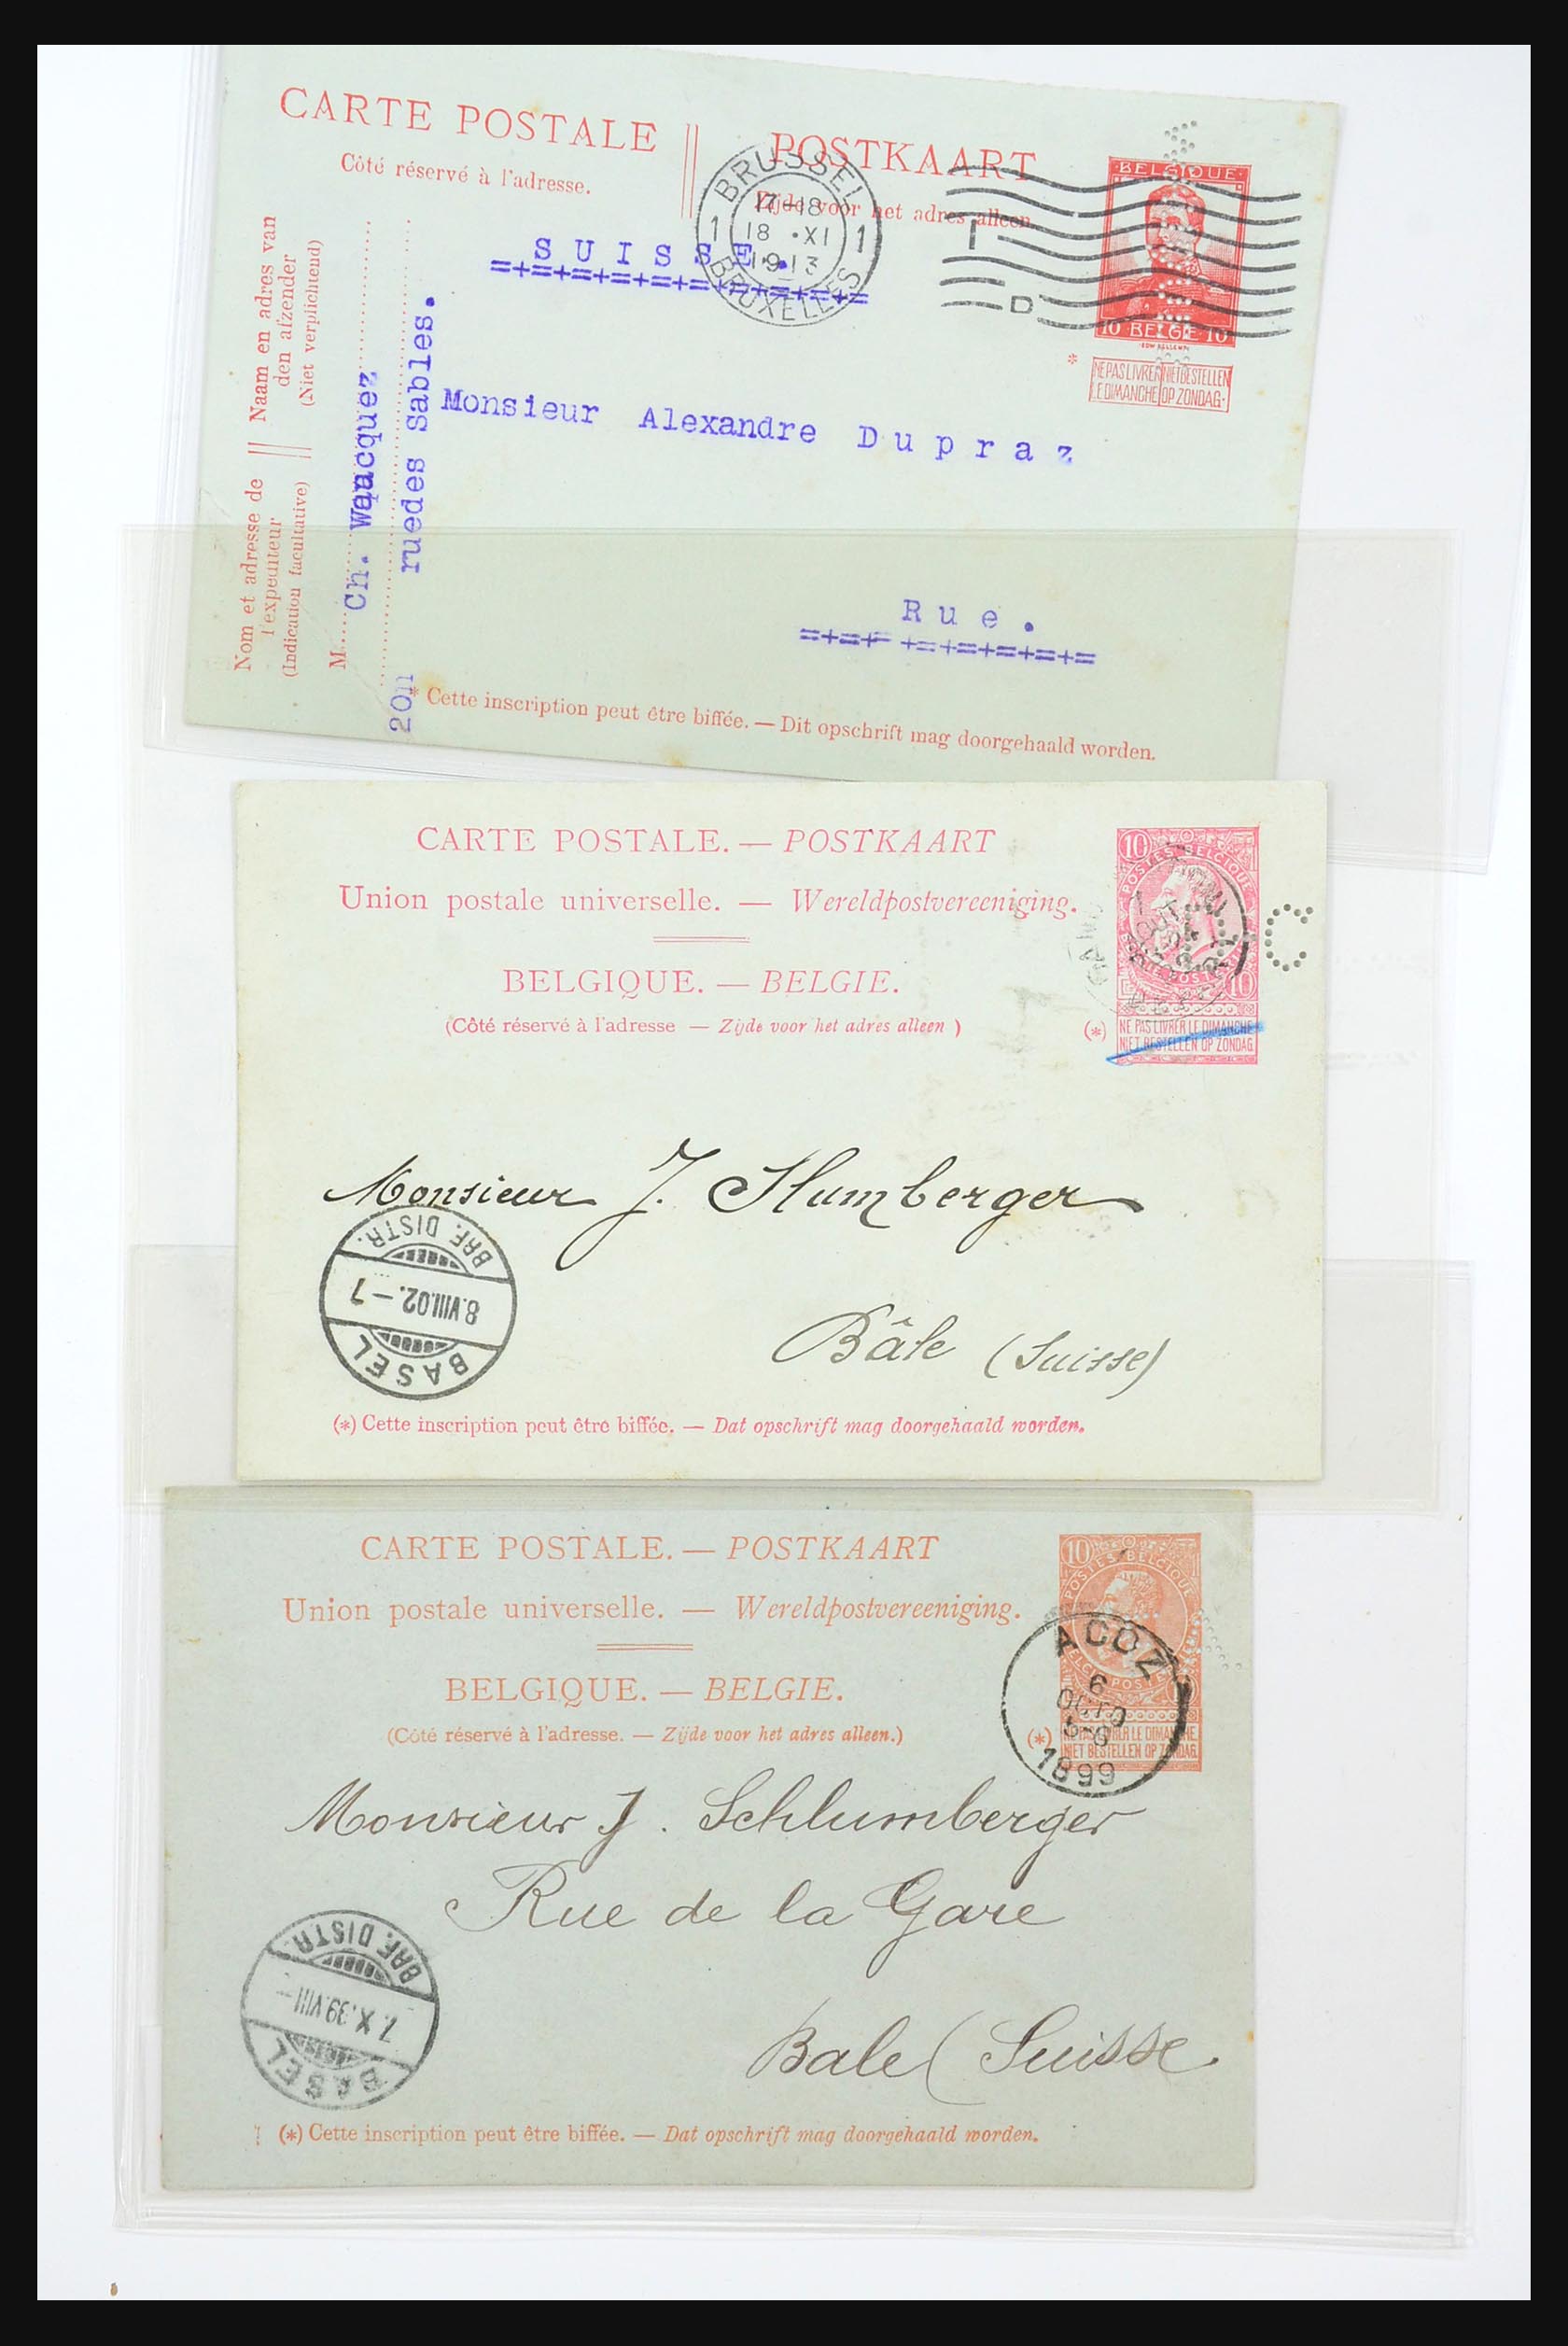 CARTE POSTALE POSTKAART
Côté réservé à l'adresse. Zijde voor het adres alleen.
BRUSSEL
1 17-18 1
18 ·XI
1913
BRUXELLES
D
BELGIQUE
10 BELGIE 10
*
NE PAS LIVRER NIET BESTELLEN
LE DIMANCHE OP ZONDAG.
SUISSE.
=+=+=+=+=+=+=+=+=+=
Naam en adres van
den afzender
(Niet verplichtend)
Nom et adresse de
l'expéditeur
(Indication facultative)
M. Ch. Wauacquez
20n ruedes Sables.
Monsieur Alexandre Dupraz
Rue.
=+=+= +=+=+=+=+=
* Cette inscription peut être biffée. — Dit opschrift mag doorgehaald worden.
CARTE POSTALE. — POSTKAART
Union postale universelle. — Wereldpostvereeniging.
BELGIQUE. — BELGIE.
(Côté réservé à l'adresse — Zijde voor het adres alleen )
10 POSTES BELGIQUE
10
C
(*) NE PAS LIVRER LE DIMANCHE
NIET BESTELLEN OP ZONDAG
Monsieur J. Slumberger
Bâle (Suisse)
BASEL
8.VIII.02.–7
BRF. DISTR.
(*) Cette inscription peut être biffée. — Dat opschrift mag doorgehaald worden.
CARTE POSTALE. — POSTKAART
Union postale universelle. — Wereldpostvereeniging.
BELGIQUE. — BELGIE.
(Côté réservé à l'adresse. — Zijde voor het adres alleen.)
10 POSTES BELGIQUE
ACOZ
6
OCTO
1899
(*) NE PAS LIVRER LE DIMANCHE.
NIET BESTELLEN OP ZONDAG.
Monsieur J. Schlumberger
Rue de la Gare
Bale (Suisse
BASEL
7.X.99.VIII–
BRF. DISTR.
(*) Cette inscription peut être biffée. — Dat opschrift mag doorgehaald worden.